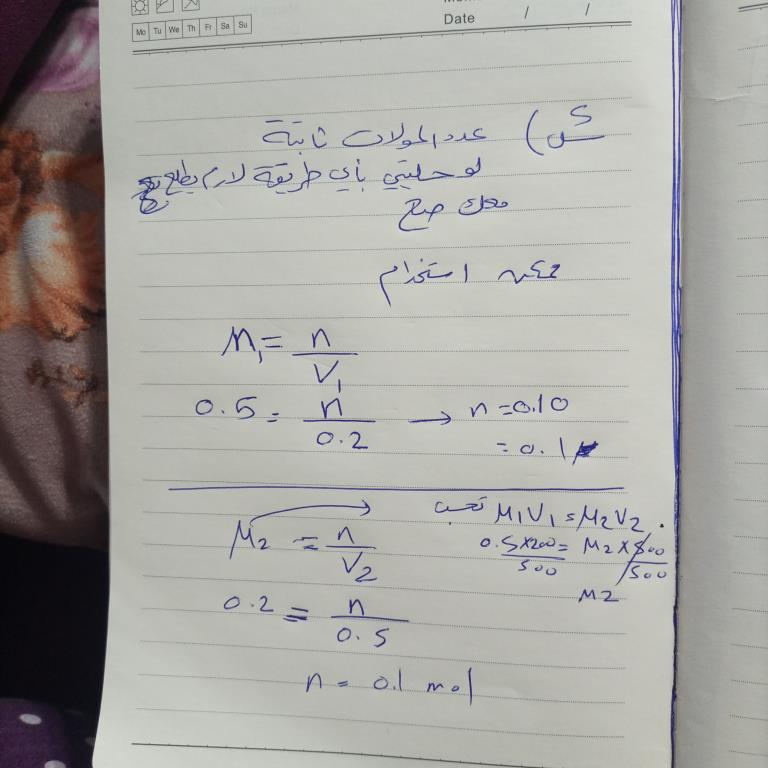 Date / /
Mo Tu We Th Fr Sa Su
س) عدد المولات ثابتة
لو حليتي بأي طريقة لازم يطلع
معك صح
ممكن استخدام
M₁ = n / V₁
0.5 = n / 0.2 → n = 0.10
= 0.1
M₁V₁ = M₂V₂
0.5×200 / 500 = M₂ × 500 / 500
M2
M₂ = n / V₂
0.2 = n / 0.5
n = 0.1 mol